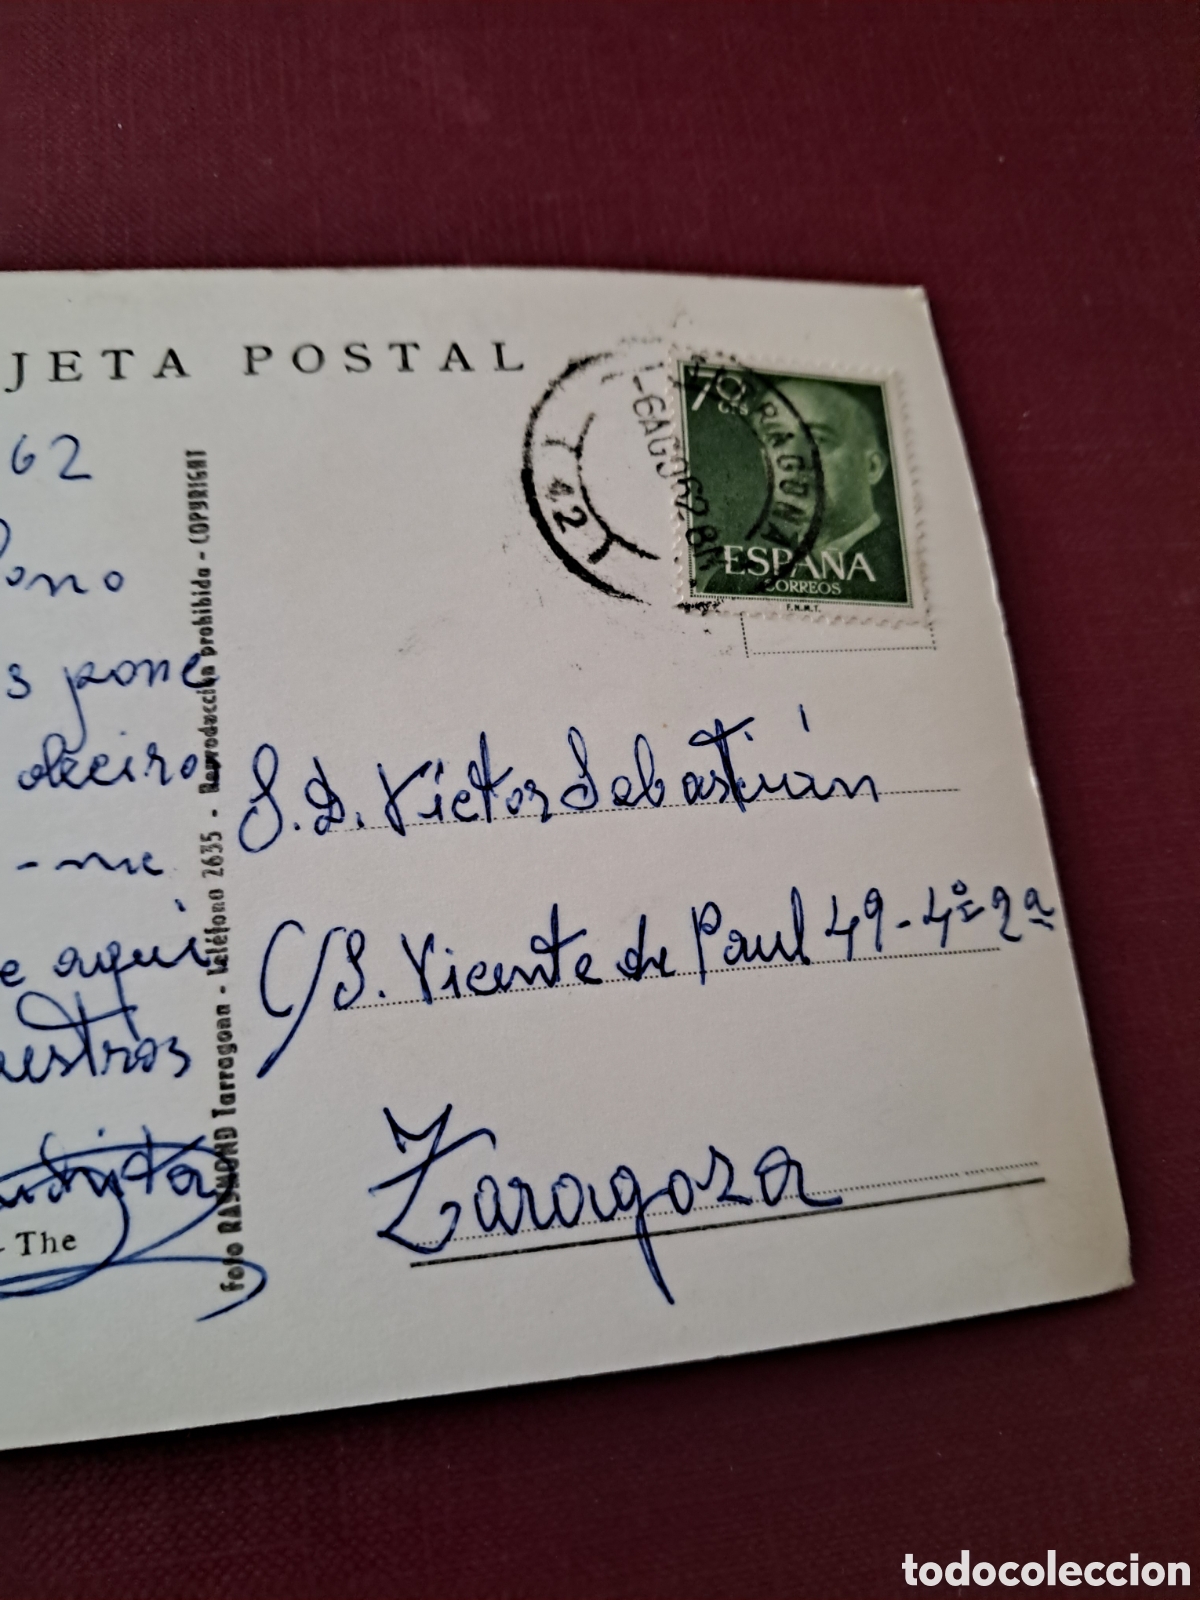 JETA POSTAL
62
s pone
-me
e aqui
The
foto RAYMOND Tarragona - teléfono 2635 - Reproducción prohibida - COPYRIGHT
TARRAGONA
-6AGO62.8
42
70 CTS
ESPAÑA
CORREOS
F.N.M.T.
S. D. Víctor Sebastián
C/S. Vicente de Paul 49-4º-2ª
Zaragoza
todocoleccion